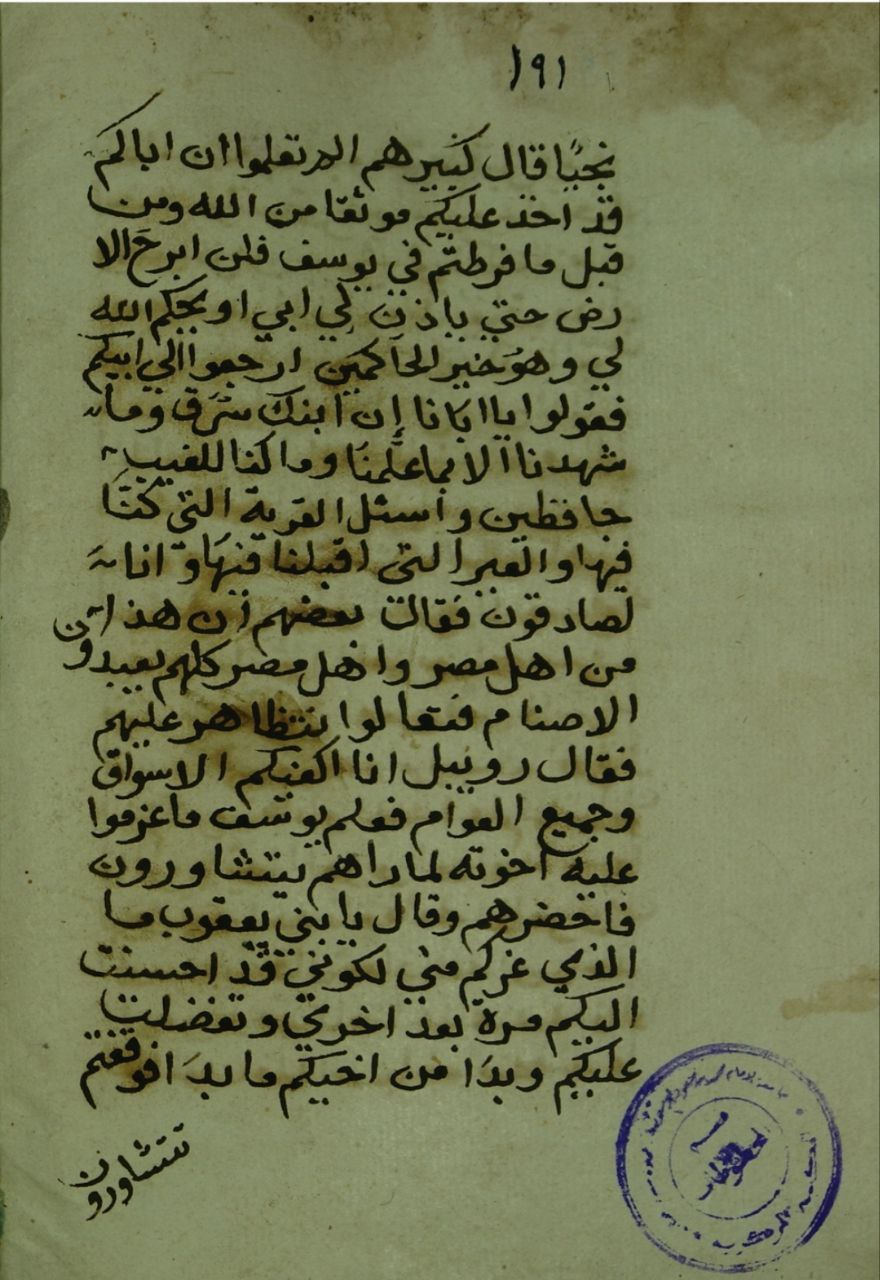 ١٩١
نجيًا قال كبيرهم الم تعلموا ان اباكم
قد اخذ عليكم موثقا من الله ومن
قبل ما فرطتم في يوسف فلن ابرح الا
رض حتي ياذن لي ابي او يحكم الله
لي وهو خير الحاكمين ارجعوا الي ابيكم
فقولوا يا ابانا إن ابنك سرق وما
شهدنا الا بما علمنا وما كنا للغيب
حافظين واسئل القرية التي كنّا
فيها والعير التي اقبلنا فيها وانا
لصادقون فقالت بعضهم ان هذا
من اهل مصر واهل مصر كلهم يعبدون
الاصنام فتعالوا نتظاهر عليهم
فقال روبيل انا اكفيكم الاسواق
وجميع العوام فعلم يوسف ما عزموا
عليه اخوته لما راهم يتشاورون
فاحضرهم وقال يا بني يعقوب ما
الذي غركم مني لكوني قد احسنت
اليكم مرة بعد اخري وتفضلت
عليكم وبدَا من اخيكم ما بدَا فوقفتم
تتشاورون